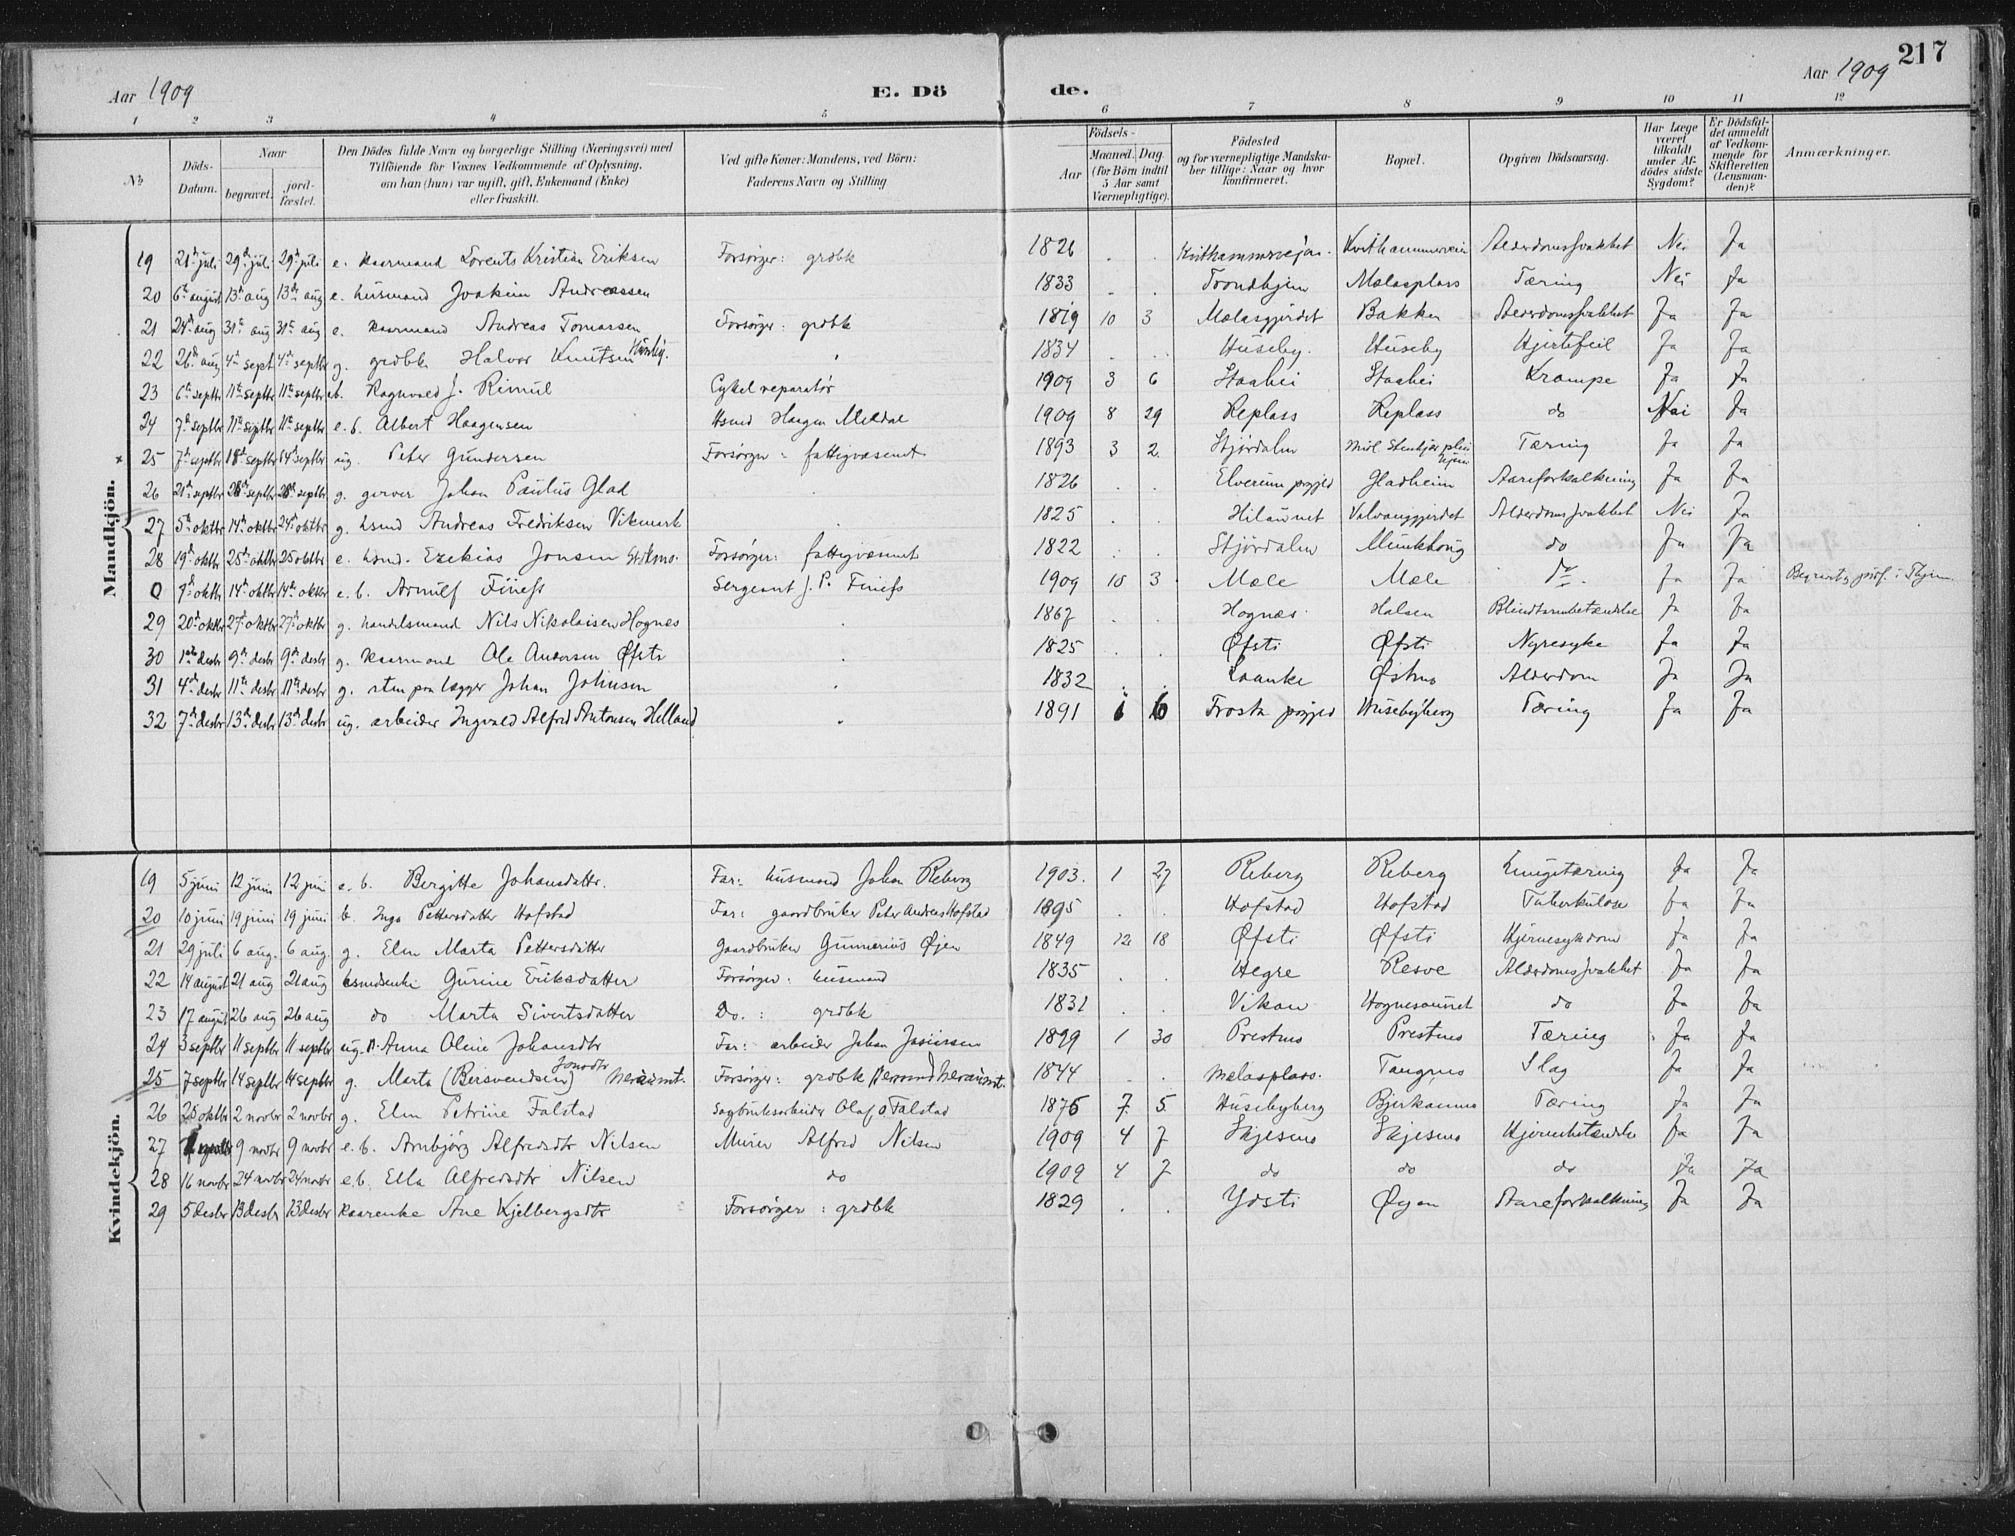 217
Aar 1909 E. Dö de. Aar 1909
1 2 3 4 5 6 7 8 9 10 11 12
№ Döds-Datum. Naar begravet. jord-fæstet. Den Dödes fulde Navn og borgerlige Stilling (Næringsvei) med Tilföiende for Voxnes Vedkommende af Oplysning, om han (hun) var ugift, gift, Enkemand (Enke) eller fraskilt. Ved gifte Koner: Mandens, ved Börn: Faderens Navn og Stilling Födsels- Aar Maaned. Dag (for Börn indtil 5 Aar samt Værnepligtige). Födested og for værnepligtige Mandskaber tillige: Naar og hvor konfirmeret. Bopæl. Opgiven Dödsaarsag. Har Læge været tilkaldt under Afdödes sidste Sygdom? Er Dödsfaldet anmeldt af Vedkommende for Skifteretten (Lensmanden)? Anmærkninger.
Mandkjön.
19 21d juli 29d juli 29d juli e. kaarmand Lorents Kristian Eriksen Forsørger: grdbk 1826 . . Kvithammervejen. Kvithammerveien Alderdomssvakhet Nei Ja
20 6te august 13d aug 13de aug e. husmand Joakim Andreassen 1833 . . Trondhjem Mælasplass Tæring Nei Ja
21 24d aug 31te aug 31te aug e. kaarmand Andreas Tomassen Forsørger: grdbk 1819 10 3 Mælasgjerdet Bakken Alderdomssvakhet Ja Ja
22 26d aug 4d septr 4d septbr g. grdbk Halvor Knutsen Huseby. 1834 . . Huseby. Huseby Hjertefeil Ja Ja
23 6te septbr 11te septbr 11te septbr eb. Ragnvald J. Rimul Cykelreparatør 1909 3 6 Staahei Staahei Krampe Ja Ja
24 7d septbr 11te septbr 11te septbr e. b. Albert Haagensen Hsmd Haagen Meldal 1909 8 29 Replass Replass do Nei Ja
25 7d septbr 18d septbr 14d septbr ug. Peter Gundersen Forsørger: fattigvæsenet 1893 3 2 Stjørdalen Tæring Ja Ja
26 21d septbr 28d septbr 28d septbr g. garver Johan Paulus Glad 1826 . . Elverum prgjed Gladheim Aareforkalkning Ja Ja
27 5te oktbr 14d oktbr 24d oktbr g. hsmd Andreas Fredriksen Vikmark 1825 . . Hilaunet Valvanggjerdet Alderdomssvakhet Nei Ja
28 19d oktbr 25d oktbr 25 oktbr e. hsmd. Ezekias Jonsen Forsørger: fattigvæsenet 1822 . . Stjørdalen Munkhaug do Ja Ja
0 9d oktbr 14d oktbr 14d oktbr e. b. Arnulf Finess Sergeant J. P. Finess 1909 10 3 Mæle Mæle do. Ja Ja
29 20d oktbr 27d oktbr 27d oktbr g. handelsmand Nils Nikolaisen Hognes 1867 . . Hognæs Halsen Blindtarmbetændelse Ja Ja
30 1ste desbr 9d desbr 9d desbr g. kaarmand Ole Andersen Øfsti 1825 . . Øfsti Øfsti Nyresyke Ja Ja
31 4d desbr 11te desbr 11te desbr g. Johan Johnsen 1832 . . Laanke Østmo Alderdom Ja Ja
32 7d desbr 13d desbr 13d desbr ug. arbeider Ingvald Alfred Antonsen Helland 1891 6 16 Frosta prgjed Husebyberg Tæring Ja Ja
Kvindekjön.
19 5 juni 12 juni 12 juni e. b. Bergitte Johansdattr. Far: husmand Johan Reberg 1903. 1 27 Reberg Reberg Lungetæring Ja Ja
20 10 juni 19 juni 19 juni b. Inga Pettersdatter Hofstad Far: gaardbruker Peter Andreas Hofstad 1895 . . Hofstad Hofstad Tuberkulose Ja Ja
21 29 juli 6 aug. 6 aug. g. Elen Marta Pettersdatter Gaardbruker Gunnerius Øyen 1849 12 18 Øfsti Øfsti Hjernesykdom Ja Ja
22 14 august 21 aug 21 aug hsmdsenke Gurine Eriksdatter Forsørger: husmand 1835 . . Hegre Resve Alderdomssvakhet Ja Ja
23 17 august 26 aug 26 aug do Marta Sivertsdatter Do.: grdbk 1831 . . Vikan Hognesaunet do Ja Ja
24 3 septbr 11 septbr 11 septbr ug. Anna Oline Johansdtr Far: arbeider Johan 1899 1 30 Prestmo Prestmo Tæring Ja Ja
25 7 septbr 14 septbr 14 septbr g. Marta (Bersvendsen) Jonsdtr Forsørger: grdbk 1844 . . Mælasplass. Tangmo Slag Ja Ja
26 25 oktbr 2 novbr 2 novbr g. Elen Petrine Falstad Sagbruksarbeider Olaf Falstad 1876 7. 5. Husebyberg Bjerkanmo Tæring Ja Ja
27 9 novbr 9 novbr e. b. Arnbjørg Alfredsdtr Nilsen Murer Alfred Nilsen 1909 4 7 Skjesmo Skjesmo Hjernebetændelse Ja Ja
28 16 novbr 24 novbr 24 novbr e.b. Ella Alfredsdtr Nilsen do 1909 4 7 do do do Ja Ja
29 5 desbr 13 desbr 13 desbr kaarenke Ane Kjelbergsdtr Forsørger: grdbk 1829 . . Ydsti Øyen Aareforkalkning Ja Ja